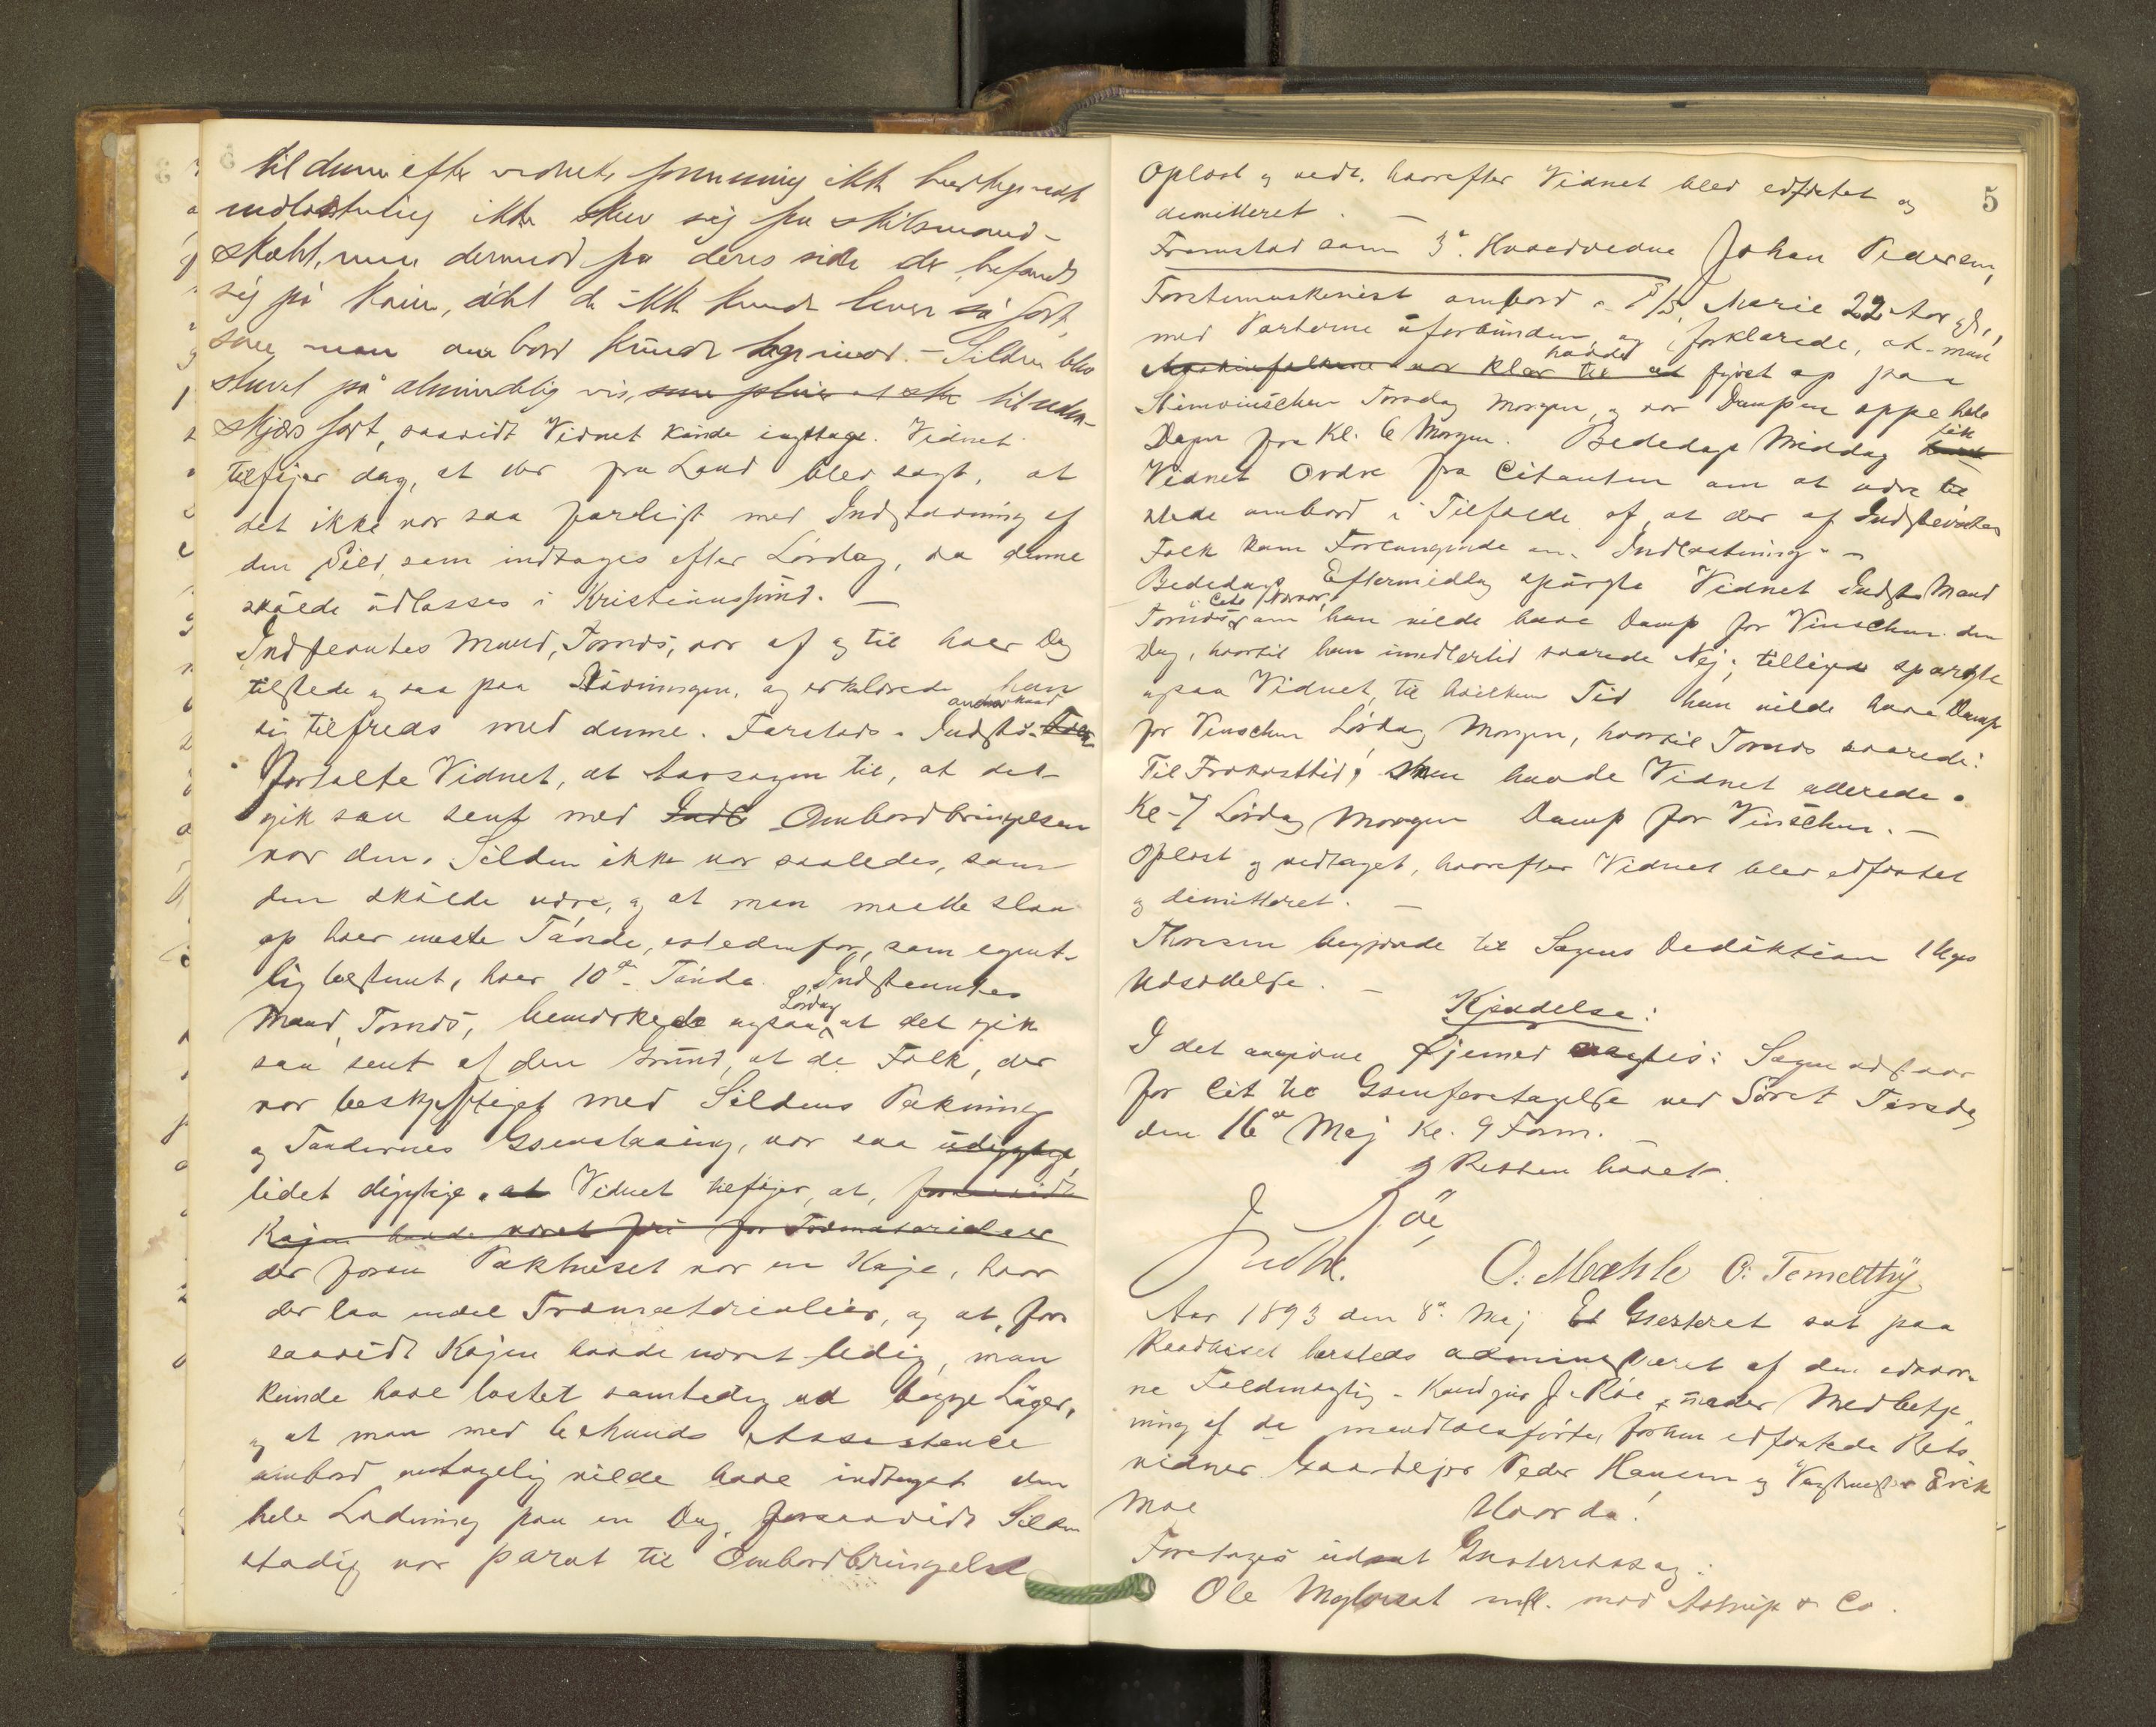 til denne efter vidnets formening ikke
indlastning ikke skrev sig fra skibsmand-
skabet, men derimod fra deres side der befandt
sig på Kaien, idet de ikke kunde levere så fort,
som man ombord kunde tage imod. - Silden blev
stuvet på almindelig vis, som pleier at ske til uden-
skjærs fart, saavidt Vidnet kunde iagttage. Vidnet
tilføjer dog, at der fra Land blev sagt, at
det ikke var saa farligt med Indstuvning af
den Sild, som indtoges efter Lørdag, da denne
skulde udlosses i Kristiansund. —
Indstevntes Mand, Tornøs, var af og til hver Dag
tilstede og saa paa Stuvningen, og erklærede han
sig tilfreds med denne. Farstad - Indst's
fortalte Vidnet, at Aarsagen til, at det
gik saa sent med Indl Ombordbringelsen
var den, Silden ikke var saaledes, som
den skulde være, og at man maatte slaa
op hver eneste Tønde, istedenfor, som egent-
lig bestemt, hver 10de Tønde. Indstevntes
Mand, Tornøs, bemærkede ogsaa Lørdag at det gik
saa sent af den Grund, at de Folk, der
var beskjæftiget med Sildens Pakning
og Tøndernes Gjenslaaing, var saa udygtige
lidet dygtige. at Vidnet tilføjer, at, forsaavidt
Kajen havde været fri for Træmaterialier
der foran Pakhuset var en Kaje, hvor
der laa endel Træmaterialier, og at, for-
saavidt Kajen havde været ledig, man
kunde have lastet samtidig ved begge Luger,
og at man med behøvende Assistance
ombord antagelig vilde have indtaget den
hele Ladning paa en Dag, forsaavidt Silden
stadig var parat til Ombordbringelse
5
Oplæst og vedt. hvorefter Vidnet blev edfæstet og
dimitteret. —
Fremstod som 3die Hovedvidne Johan Pedersen,
Førstemaskinist ombord i D/S. Marie 22 Aar gl.,
med Parterne uforbunden og forklarede, at man
Maskinfolkene var klar til at havde fyret op paa
Stimvinschen Torsdag Morgen, og var Dampen oppe hele
Dagen fra Kl. 6 Morgen. Bededags Middag fik
Vidnet Ordre fra Citanten om at være til
stede ombord i Tilfælde af, at der af Indstevntes
Folk kom Forlangende om Indlastning. —
Bededags Eftermiddag spurgte Vidnet Indst's Mand
Tornøs, om han vilde have Damp for Vinschen den
Dag, hvortil han imidlertid svarede Nej; tilligemed spurgte
ogsaa Vidnet, til hvilken Tid han vilde have Damp
for Vinschen Lørdag Morgen, hvortil Tornøs svarede:
Til Frokosttid; men havde Vidnet allerede
Kl. 7 Lørdag Morgen Damp for Vinschen. —
Oplæst og vedtaget, hvorefter Vidnet blev edfæstet
og dimitteret. —
Thoresen begjærede til Sagens Deduktion 1 Uges
Udsættelse. —
Kjendelse:
I det angivne Øjemed eragtes: Sagen udstaar
for Cit til Gjenforetagelse ved Søret Tirsdag
den 16de Maj Kl. 9 Form.
Retten hævet.
J. Röe
O. Mæhle O. Temelthy
Aar 1893 den 8de Maj Et Gjesteret sat paa
Raadhuset hersteds administreret af den edsvor-
ne Fuldmægtig - Kand jur J. Röe, under Medbetje-
ning af de mandtalsførte, forhen edfæstede Rets-
vidner Gaardejer Peder Hansen og Vagtmester Erik
Moe
Hvorda!
Foretages udsat Gjesteretssag:
Ole Myklebust mfl. mod Astrup & Co.